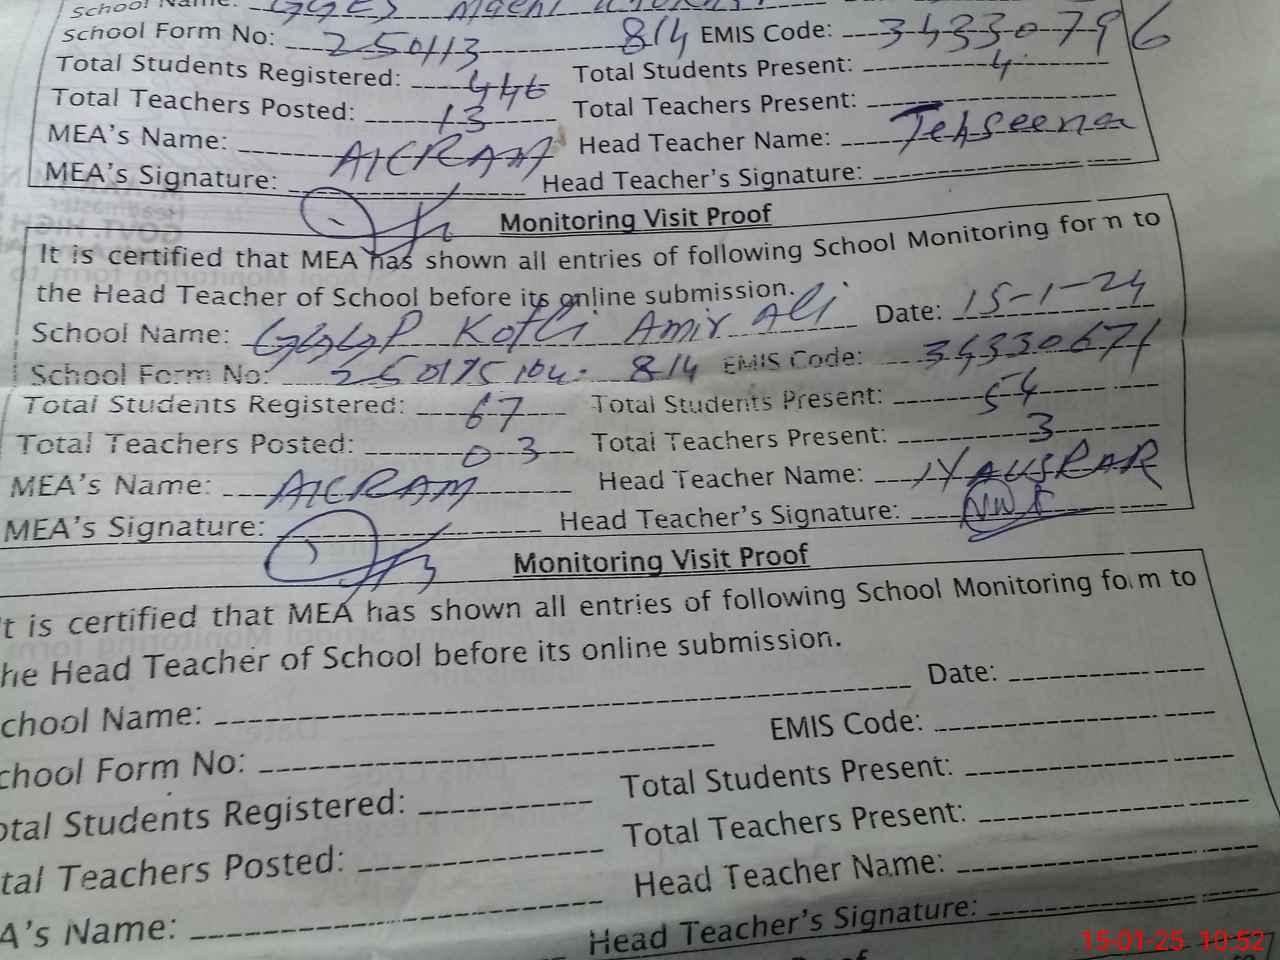 School Name: GGES
School Form No: 250113 814 EMIS Code: 34330796
Total Students Registered: 446 Total Students Present: 4
Total Teachers Posted: 13 Total Teachers Present:
MEA's Name: AKRAM Head Teacher Name: Tehseena
MEA's Signature: Head Teacher's Signature:
Monitoring Visit Proof
It is certified that MEA has shown all entries of following School Monitoring form to
the Head Teacher of School before its online submission.
School Name: GGGP Kotli Amir Ali Date: 15-1-24
School Form No: 250175 814 EMIS Code: 34330671
Total Students Registered: 67 Total Students Present: 54
Total Teachers Posted: 03 Total Teachers Present: 3
MEA's Name: AKRAM Head Teacher Name:
MEA's Signature: Head Teacher's Signature:
Monitoring Visit Proof
t is certified that MEA has shown all entries of following School Monitoring form to
he Head Teacher of School before its online submission.
chool Name: Date:
chool Form No: EMIS Code:
otal Students Registered: Total Students Present:
tal Teachers Posted: Total Teachers Present:
A's Name: Head Teacher Name:
Head Teacher's Signature:
15-01-25 10:52